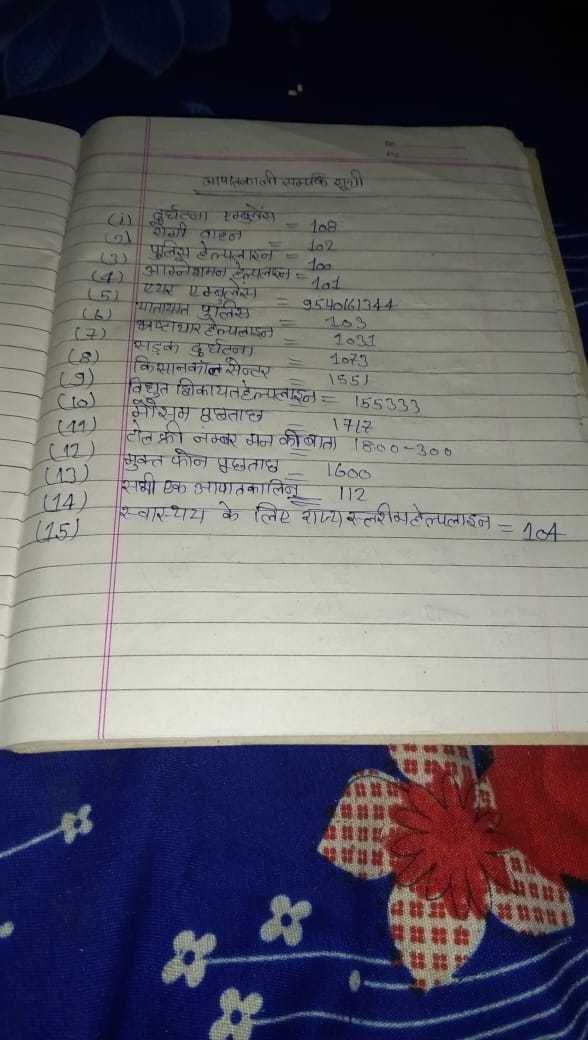 आपातकाली सम्पर्क सूची
(1) दुर्घटना एम्बुलेंस = 108
(2) रोगी वाहन = 102
(3) पुलिस हेल्पलाइन = 100
(4) अग्नेशमन हेल्पलाइन = 101
(5) एयर एम्बुलेंस = 9540161344
(6) यातायात पुलिस = 103
(7) भ्रष्टाचार हेल्पलाइन = 1031
(8) सड़क दुर्घटना = 1073
(9) किसानकॉल सेन्टर = 1551
(10) विधुत शिकायतहेल्पलाइन = 155333
(11) मौसम पूछताछ = 1717
(12) टोल फ्री नम्बर मन की बात 1800-300
(13) मुक्त फोन पूछताछ = 1600
(14) सभी एक आपातकालिन = 112
(15) स्वास्थय के लिए राज्यस्तरीय हेल्पलाइन = 104